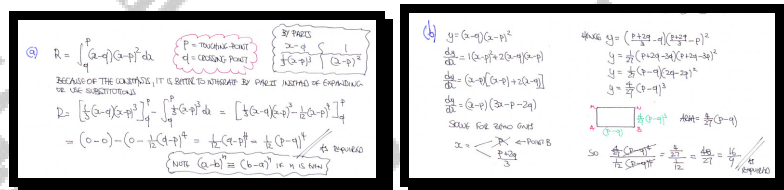 (a) R = ∫_q^p (x-q)(x-p)² dx
P = TOUCHING POINT
q = CROSSING POINT
BY PARTS
x-q | 1
⅓(x-p)³ | (x-p)²
BECAUSE OF THE CONSTANTS, IT IS BETTER TO INTEGRATE BY PARTS INSTEAD OF EXPANDING
OR USE SUBSTITUTIONS
R = [⅓(x-q)(x-p)³]_q^p - ∫_q^p ⅓(x-p)³ dx = [⅓(x-q)(x-p)³ - 1/12(x-p)⁴]_q^p
= (0-0) - (0 - 1/12(q-p)⁴) = 1/12(q-p)⁴ = 1/12(p-q)⁴
AS REQUIRED
NOTE (a-b)ⁿ ≡ (b-a)ⁿ IF n IS EVEN
(b) y = (x-q)(x-p)²
dy/dx = 1(x-p)² + 2(x-q)(x-p)
dy/dx = (x-p)[(x-p) + 2(x-q)]
dy/dx = (x-p)(3x-p-2q)
SOLVE FOR ZERO GIVES
x = < p ← POINT B
(p+2q)/3
HENCE y = ((p+2q)/3 - q)((p+2q)/3 - p)²
y = 1/27(p+2q-3q)(p+2q-3p)²
y = 1/27(p-q)(2q-2p)²
y = 4/27(p-q)³
M N
4/27(p-q)³
A B
(p-q)
AREA = 4/27(p-q)⁴
SO 4/27(p-q)⁴ / 1/12(p-q)⁴ = 4/27 / 1/12 = 48/27 = 16/9
AS REQUIRED